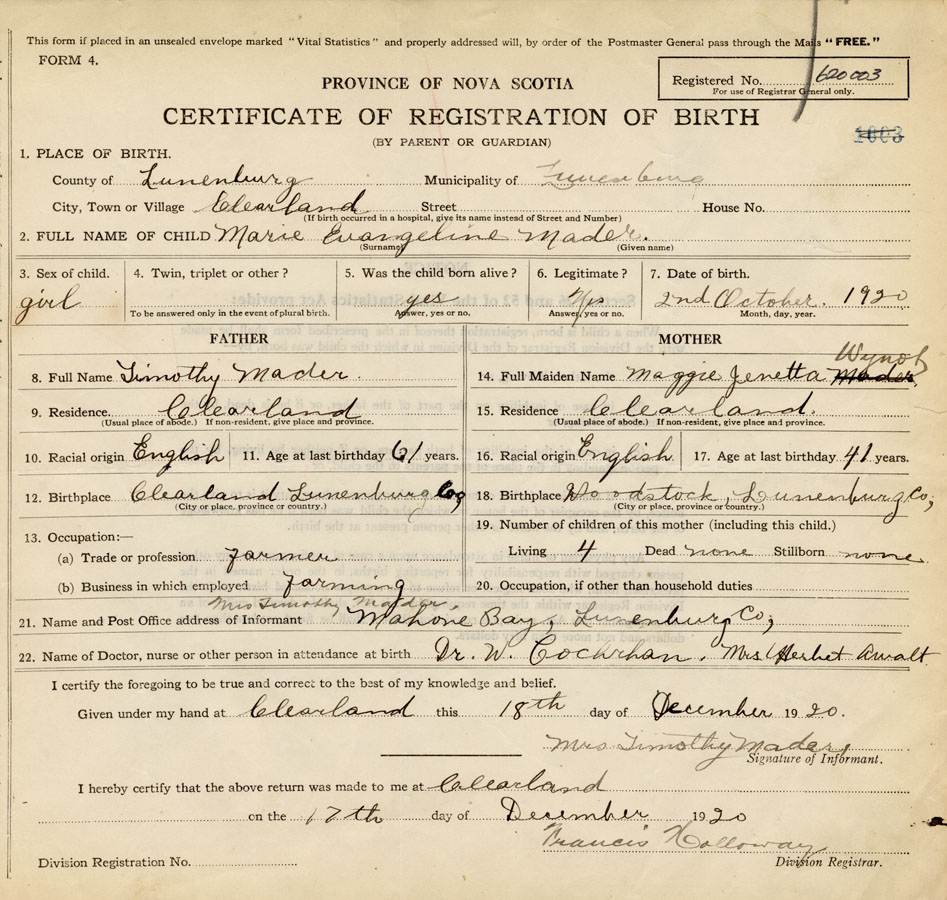 This form if placed in an unsealed envelope marked "Vital Statistics" and properly addressed will, by order of the Postmaster General pass through the Mails "FREE."
FORM 4.
Registered No. 620003
For use of Registrar General only.
PROVINCE OF NOVA SCOTIA
CERTIFICATE OF REGISTRATION OF BIRTH
1603
(BY PARENT OR GUARDIAN)
1. PLACE OF BIRTH.
County of Lunenburg Municipality of Lunenburg
City, Town or Village Clearland Street House No.
(If birth occurred in a hospital, give its name instead of Street and Number)
2. FULL NAME OF CHILD Marie Evangeline Mader.
(Surname) (Given name)
3. Sex of child. 4. Twin, triplet or other? 5. Was the child born alive? 6. Legitimate? 7. Date of birth.
girl yes Yes 2nd October. 1920
To be answered only in the event of plural birth. Answer, yes or no. Answer, yes or no. Month, day, year.
FATHER MOTHER
Wynot
8. Full Name Timothy Mader. 14. Full Maiden Name Maggie Jenetta Mader
9. Residence. Clearland 15. Residence Clearland.
(Usual place of abode.) If non-resident, give place and province. (Usual place of abode.) If non-resident, give place and province.
10. Racial origin English 11. Age at last birthday 61 years. 16. Racial origin English 17. Age at last birthday 41 years.
12. Birthplace Clearland Lunenburg Co, 18. Birthplace Woodstock, Lunenburg Co,
(City or place, province or country.) (City or place, province or country.)
13. Occupation:— 19. Number of children of this mother (including this child.)
(a) Trade or profession farmer Living 4 Dead none Stillborn none
(b) Business in which employed farming 20. Occupation, if other than household duties
Mrs Timothy Mader.
21. Name and Post Office address of Informant Mahone Bay, Lunenburg Co,
22. Name of Doctor, nurse or other person in attendance at birth Dr. W. Cochrhan. Mrs Herbet Awalt
I certify the foregoing to be true and correct to the best of my knowledge and belief.
Given under my hand at Clearland this 18th day of December 1920.
Mrs Timothy Mader,
Signature of Informant.
I hereby certify that the above return was made to me at Clearland
on the 17th day of December 1920
Francis Holloway
Division Registration No. Division Registrar.